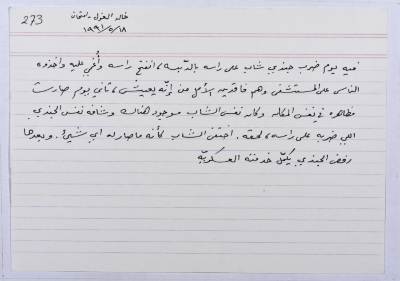 273
خالد الغول - امتحان
١٩٩١/٥/١٨
فيه يوم ضرب جندي شاب على راسه بالدبسه، انفتح راسه وأُغمي عليه واخذوه
الناس على المستشفى وهم فاقدين الأمل من إنّه يعيش، تاني يوم صارت
مظاهره في نفس المكان وكان نفس الشاب موجود هناك وشافه نفس الجندي
اللي ضربه على راسه، لحقه. اختفى الشاب كأنه ما صار له أي شيئ. وبعدها
رفض الجندي يكمّل خدمته العسكريّه